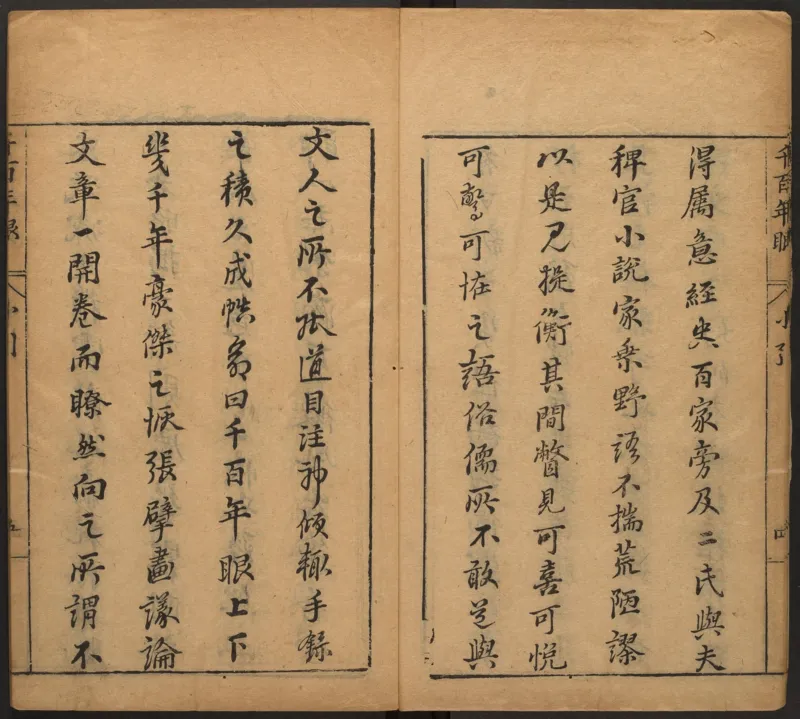 千百年眼 小引 四
得属意經史百家旁及二氏與夫
稗官小說家乗野語不揣荒陋謬
以是提衡其間瞥見可喜可悦
可驚可恠之語俗儒所不敢道與
文人之所不能道目注神傾輙手錄
之積久成帙命曰千百年眼上下
幾千年豪傑之恢張擘畫議論
文章一開卷而瞭然向之所謂不
千百年眼 小引 五